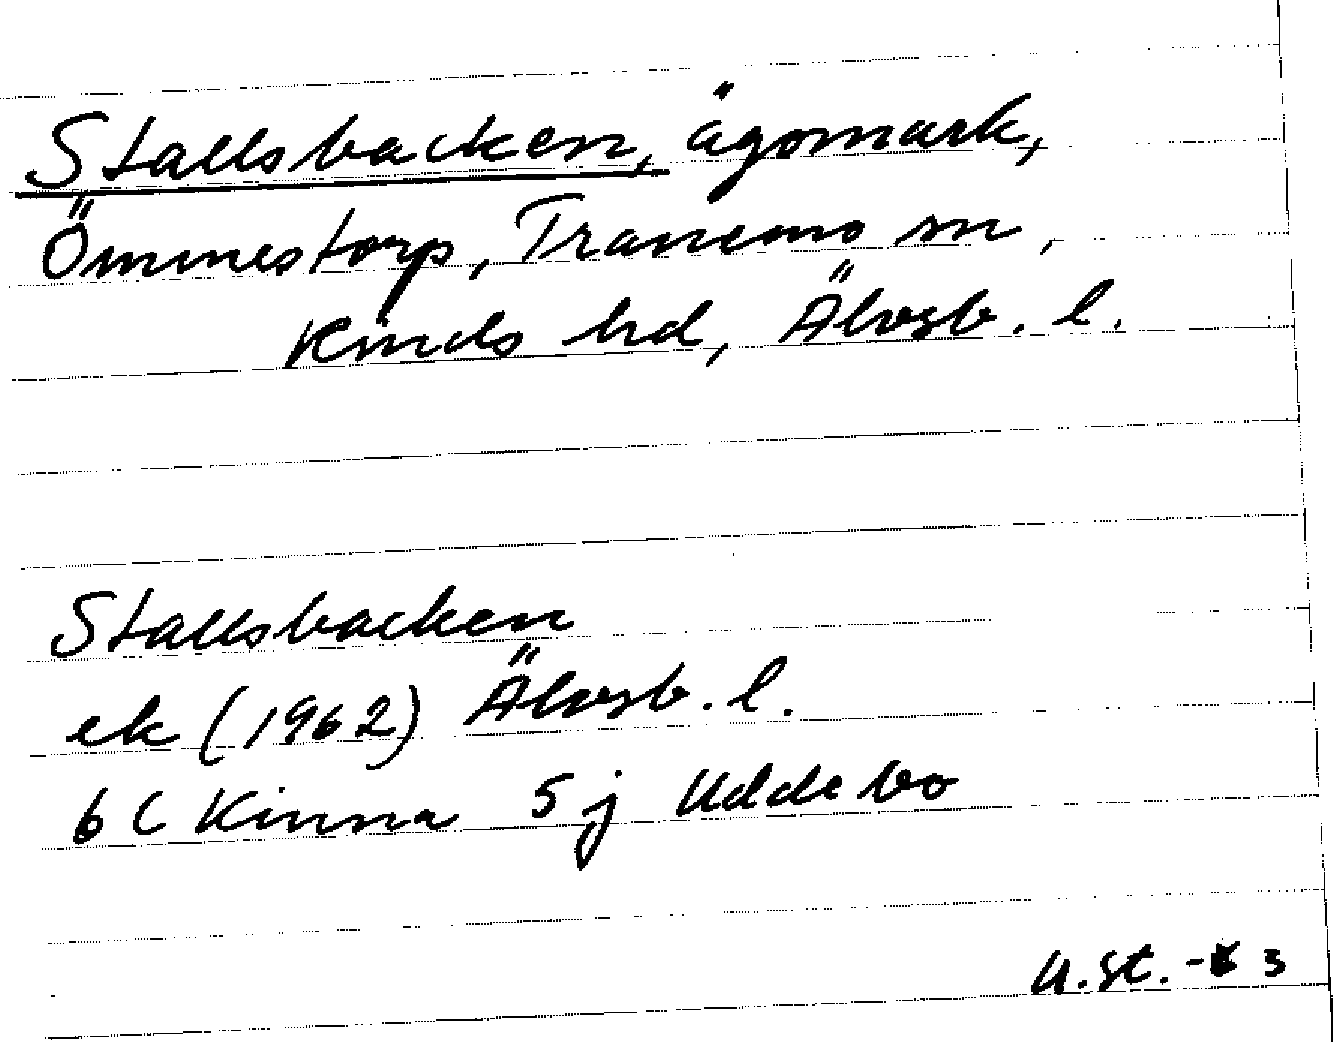 Stallsbacken, ägomark,
Ömmestorp, Tranemo sn,
Kinds hd, Älvsb. l.
Stallsbacken
ek (1962) Älvsb. l.
6 C Kinna 5 j Uddebo
U.St.- 3